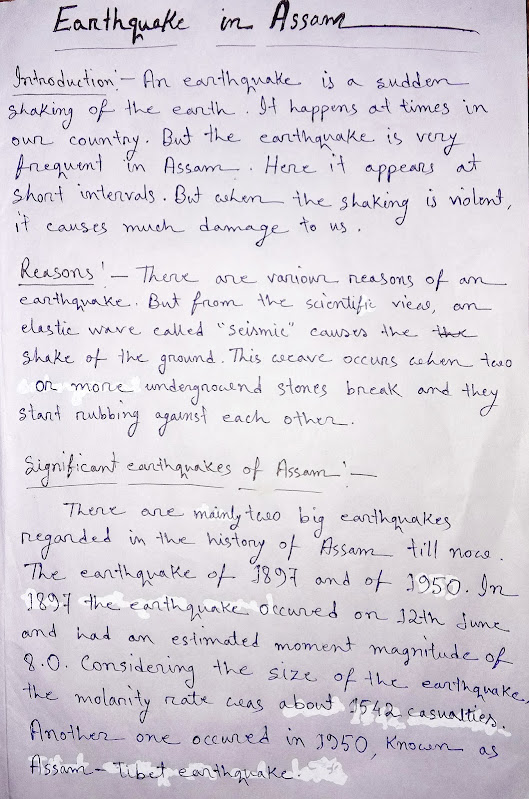 Earthquake in Assam
Introduction:- An earthquake is a sudden
shaking of the earth. It happens at times in
our country. But the earthquake is very
frequent in Assam. Here it appears at
short intervals. But when the shaking is violent,
it causes much damage to us.
Reasons:- There are various reasons of an
earthquake. But from the scientific view, an
elastic wave called "seismic" causes the the
shake of the ground. This weave occurs when two
or more underground stones break and they
start rubbing against each other.
Significant earthquakes of Assam:-
There are mainly two big earthquakes
regarded in the history of Assam till now.
The earthquake of 1897 and of 1950. In
1897 the earthquake occured on 12th June
and had an estimated moment magnitude of
8.0. Considering the size of the earthquake,
the molarity rate was about 1542 casualties.
Another one occured in 1950, known as
Assam-Tibet earthquake.